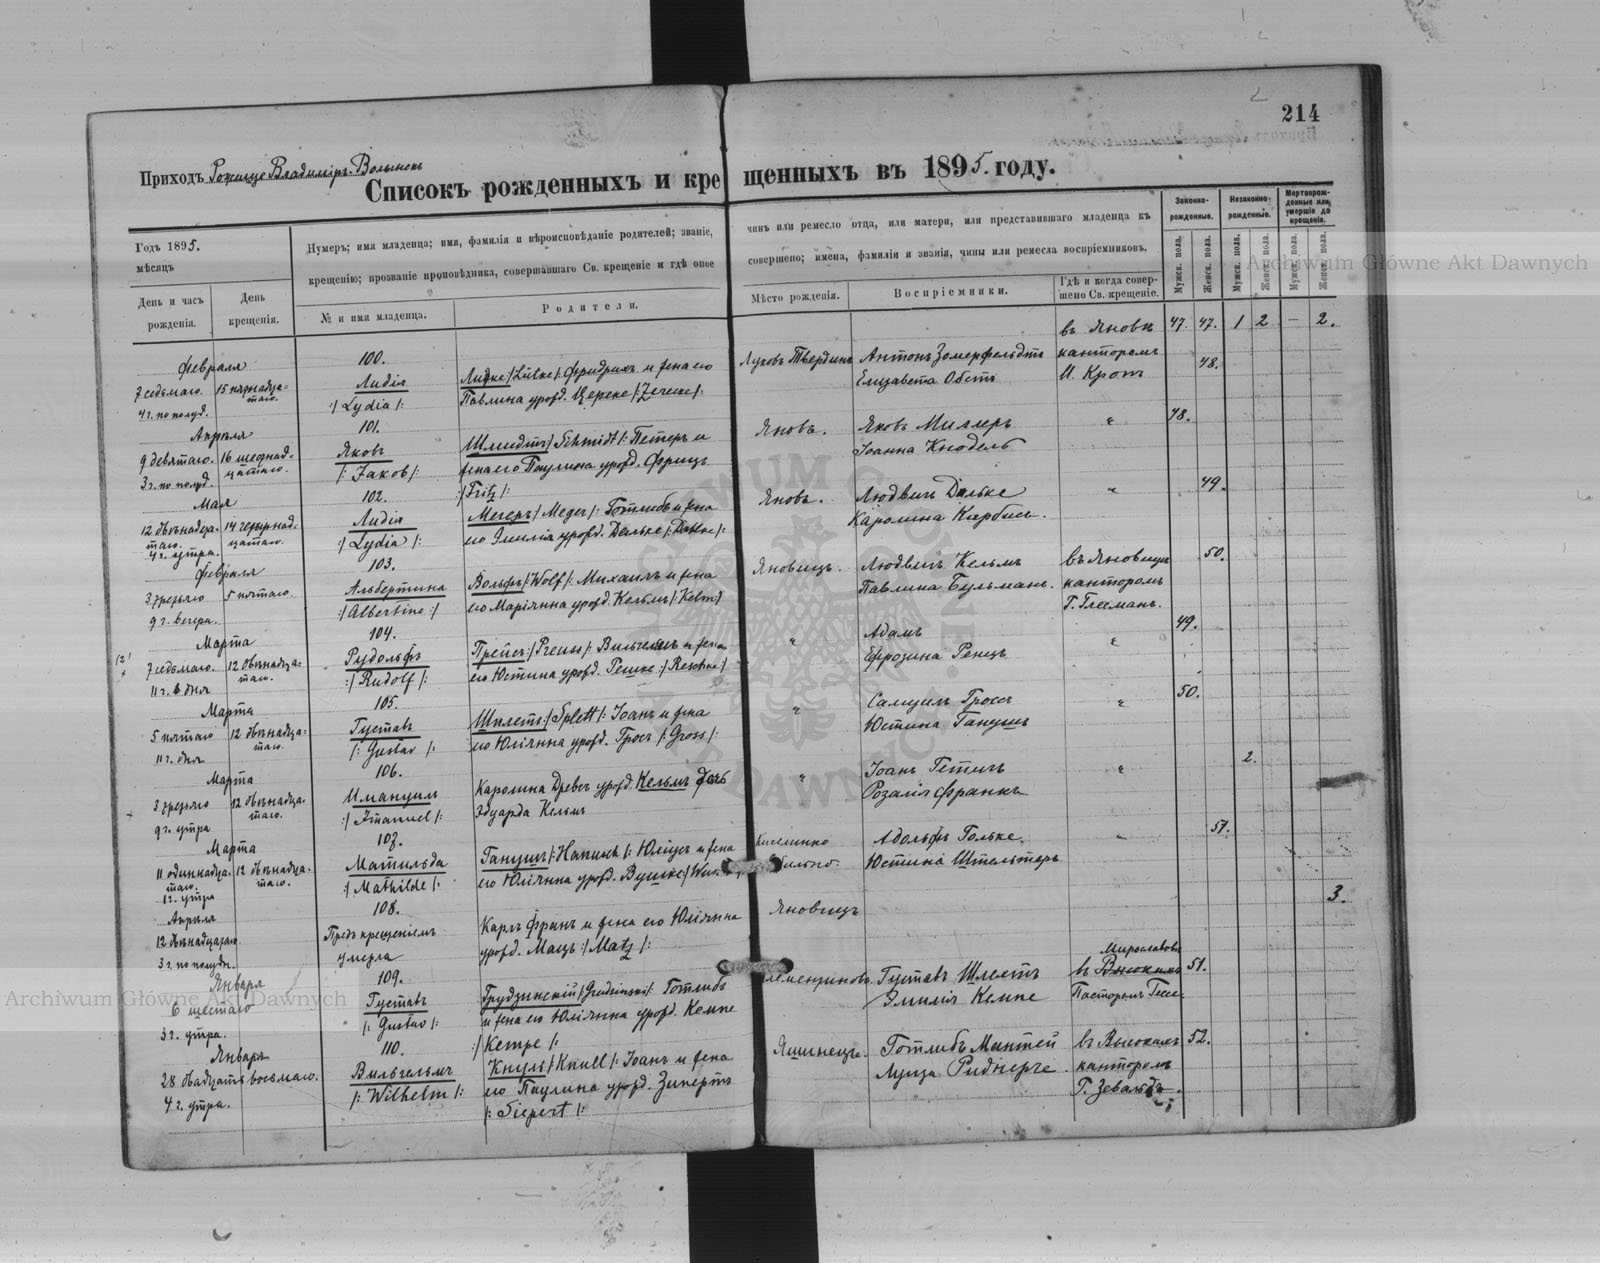 214
Приходъ Рожище Владиміръ-Волынск
Списокъ рожденныхъ и крещенныхъ въ 1895. году.
Годъ 1895.
мѣсяцъ
День и часъ рожденія.
День крещенія.
Нумеръ; имя младенца; имя, фамилія и вѣроисповѣданіе родителей; званіе, чинъ или ремесло отца, или матери, или представившаго младенца къ
крещенію; прозваніе проповѣдника, совершавшаго Св. крещеніе и гдѣ оное совершено; имена, фамиліи и званія, чины или ремесла воспріемниковъ.
№ и имя младенца.
Родители.
Мѣсто рожденія.
Воспріемники.
Гдѣ и когда совершено Св. крещеніе.
Законнорожденные.
Незаконнорожденные.
Мертворожденные или умершіе до крещенія.
Мужск. пола.
Женск. пола.
Мужск. пола.
Женск. пола.
Мужск. пола.
Женск. пола.
47. 47. 1 2 — 2.
Февраля
7 седьмаго.
4 г. по полуд.
15 пятнадцатаго.
100.
Лидія
:/Lydia/:
Людке /:Lütke/: Фридрихъ и жена его
Павлина урожд. Цереке
Антонъ Зомерфельдтъ
Елизавета Обстъ
въ Яновкѣ
канторомъ
И. Кротъ
48.
Апрѣля
9 девятаго.
3 г. по полуд.
16 шестнадцатаго.
101.
Яковъ
/:Jakob/:
Шмидтъ /:Schmidt/: Петеръ и
жена его Паулина урожд. Фрицъ
:/Fritz/:
Яновъ.
Яковъ Миллеръ
Іоанна Кнодель
"
48.
Мая
12 двѣнадцатаго.
4 г. утра.
14 четырнадцатаго.
102.
Лидія
:/Lydia/:
Готлибъ и жена
его Эмилія урожд. Дальке
Яновъ.
Людвигъ Дальке
Каролина
"
49.
Февраля
3 третьяго
9 г. вечера.
5 пятаго.
103.
Альбертина
:/Albertine:/
Вольфъ /:Wolf/: Михаилъ и жена
его Маріянна урожд. Кельмъ /:Kelm:/
Яновецъ.
Людвигъ Кельмъ
Павлина Бульманъ.
канторомъ
50.
Марта
7 седьмаго.
11 г. дня
12 двѣнадцатаго.
104.
Рудольфъ
:/Rudolf/:
Прейсъ /Preuss/: Вильгельмъ и жена
его Юстина урожд. Решке :/Reschke/
"
Адамъ
Ефрозина Ренцъ
"
49.
Марта
5 пятаго
11 г. дня.
12 двѣнадцатаго.
105.
Густавъ
/:Gustav/:
Шплетъ /Splett/: Іоанъ и жена
его Юліянна урожд. Гросъ /:Gross/:
"
Самуилъ Гроссъ
Юстина Ганушъ
"
50.
Марта
3 третьяго
9 г. утра
12 двѣнадцатаго.
106.
Имануилъ
:/Imanuel/:
Каролина Древсъ урожд. Кельмъ дочь
Эдуарда Кельмъ
"
Розалія Франкъ
"
2.
Марта
11 одиннадцатаго.
1 г. утра
12 двѣнадцатаго.
107.
Матильда
:/Mathilde/:
Ганушъ /:Hanusch/: Юліусъ и жена
его Юліянна урожд. Вушке
Адольфъ Гольке.
Юстина Штельтеръ
"
51.
Апрѣля
12 двѣнадцатаго
3 г. по полудн.
108.
Предъ крещеніемъ
умерла
Карлъ Франъ и жена его Юліянна
урожд. Мацъ :/Matz/:
Яновецъ
3.
Января
6 шестаго
3 г. утра.
109.
Густавъ
/:Gustav/:
Грудзинскій Готлибъ
и жена его Юліянна урожд. Кемпе
:/Kempe/:
Густавъ
Эмилія Кемпе
Мирославовъ
въ Высокимъ
Пасторомъ
51.
Января
28 двадцать восьмаго.
4 г. утра.
110.
Вильгельмъ
/:Wilhelm/:
Кнулъ /:Knull/: Іоанъ и жена
его Паулина урожд. Зипертъ
/:Siepert/:
Готлибъ Мантей
Луиза
въ Высокимъ
канторомъ
Г. Зевальдъ.
52.
Archiwum Główne Akt Dawnych
Archiwum Główne Akt Dawnych